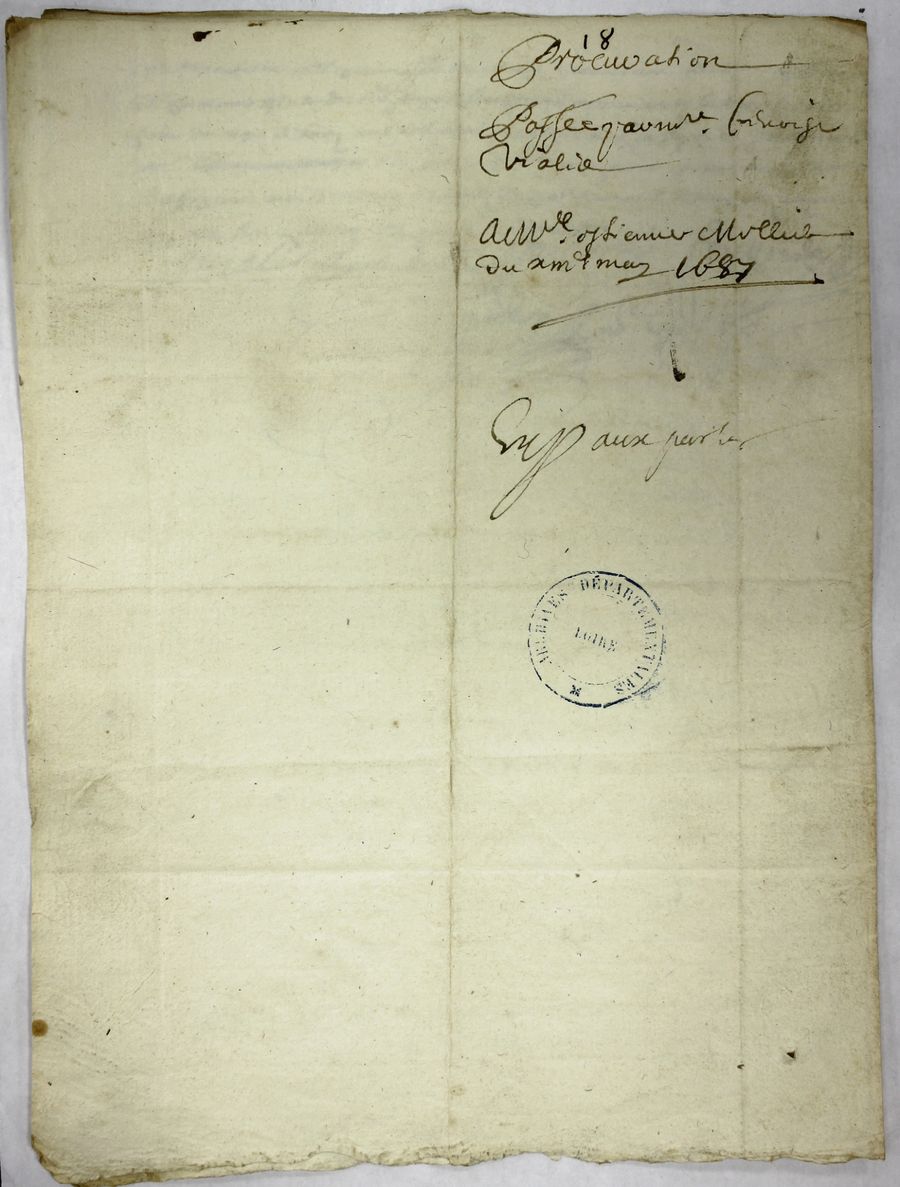 18
Procuration
Passée par mre.
Vialis
A Mre. estienne Mollin
Du xme may 1687
aux parties
ARCHIVES DÉPARTEMENTALES
LOIRE